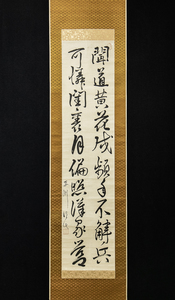 聞道黄花戍頻年不解兵
可憐閨裏月偏照漢家營